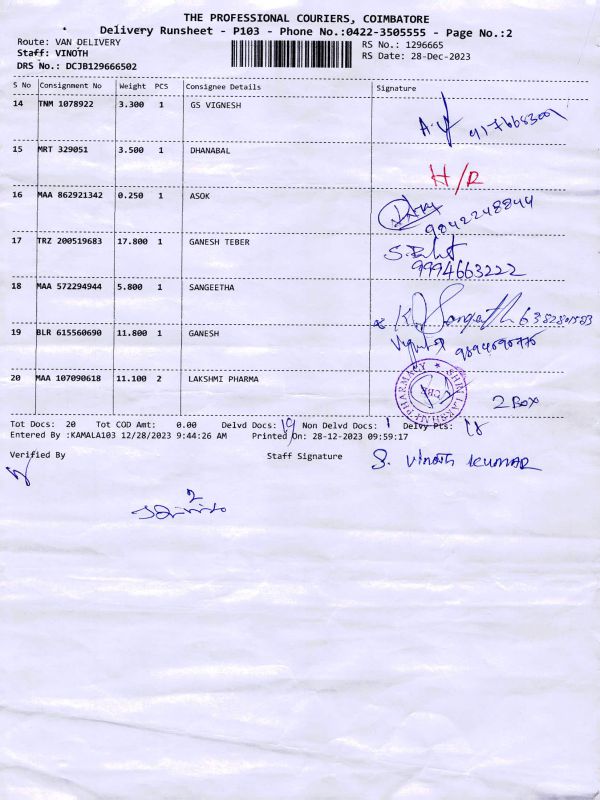 THE PROFESSIONAL COURIERS, COIMBATORE
Delivery Runsheet - P103 - Phone No.:0422-3505555 - Page No.:2
Route: VAN DELIVERY
Staff: VINOTH
DRS No.: DCJB129666502
RS No.: 1296665
RS Date: 28-Dec-2023
S No Consignment No Weight PCS Consignee Details Signature
14 TNM 1078922 3.300 1 GS VIGNESH
15 MRT 329051 3.500 1 DHANABAL H/R
16 MAA 862921342 0.250 1 ASOK 9842248844
17 TRZ 200519683 17.800 1 GANESH TEBER
9994663222
18 MAA 572294944 5.800 1 SANGEETHA Sangeetha
19 BLR 615560690 11.800 1 GANESH
20 MAA 107090618 11.100 2 LAKSHMI PHARMA 2 BOX
SHRI LAKSHMI PHARMACY CBE
Tot Docs: 20 Tot COD Amt: 0.00 Delvd Docs: 19 Non Delvd Docs: 1 Delvy Pts: 18
Entered By :KAMALA103 12/28/2023 9:44:26 AM Printed On: 28-12-2023 09:59:17
Verified By Staff Signature S. VINOTH KUMAR